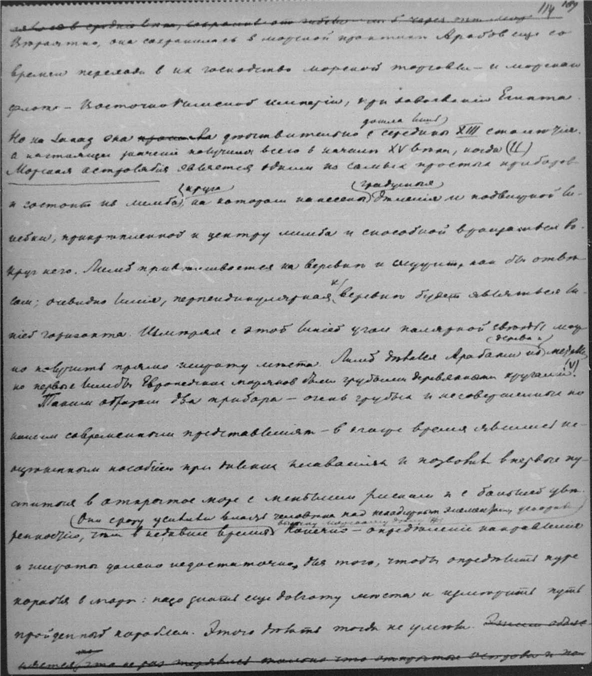 114
Вероятно, она создалась в морской практике Арабов еще со
времен перехода в их господство морской торговли – и морского
флота – Восточно-Римской империи, при завоевании Египта.
дошла лишь
Но на Запад она действительно с середины XIII столетия,
а настоящее значение получила всего в начале XV века, когда
Морская астролябия является одним из самых простых приборов
(круга) (градусные)
и состоит из лимба, на котором нанесены деления и подвижной ли-
нейки, прикрепленной к центру лимба и способной вращаться во-
круг него. Лимб привешивается на веревке и служит, как бы отве-
сом; очевидно линия, перпендикулярная к веревке будет являться ли-
нией горизонта. Измеряя с этой линией угол полярной звезды мож-
но получить прямо широту места. Лимб делался Арабами из
но первые лимбы Европейских моряков были грубыми деревянными кругами.
Таким образом два прибора – очень грубых и несовершенных по
нашим современным представлениям – в свое время явились не-
оценимым пособием при дальних плаваниях и позволили впервые пу-
ститься в открытое море с меньшим риском и с большей уве-
(Они сразу усилили власть человека над
ренностью, чем в недавнее время) Конечно – определение направления
и широты далеко недостаточно, для того, чтобы определить курс
корабля в море: надо знать еще долготу места и измерить путь
пройденный кораблем. Этого делать тогда не умели.